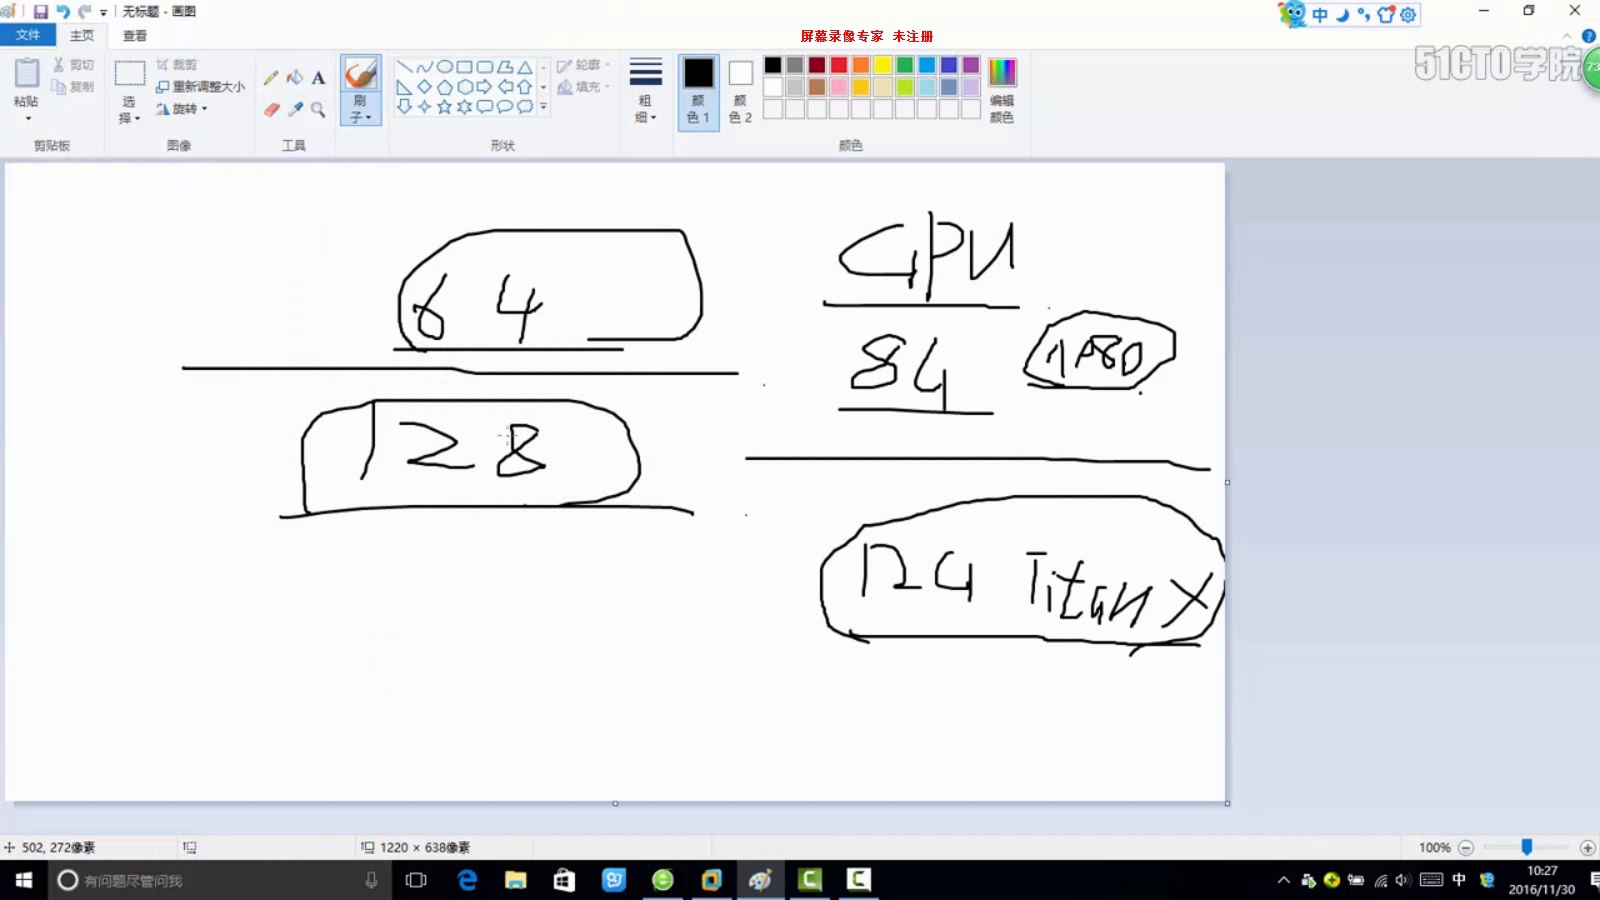 无标题 - 画图
中
文件
主页
查看
屏幕录像专家 未注册
51CTO学院
73
粘贴
剪切
复制
剪贴板
选择
裁剪
重新调整大小
旋转
图像
A
工具
刷子
轮廓
填充
形状
粗细
颜色 1
颜色 2
编辑颜色
颜色
64
GPU
8G
1080
128
12G TitanX
502, 272像素
1220 × 638像素
100%
有问题尽管问我
中
10:27
2016/11/30